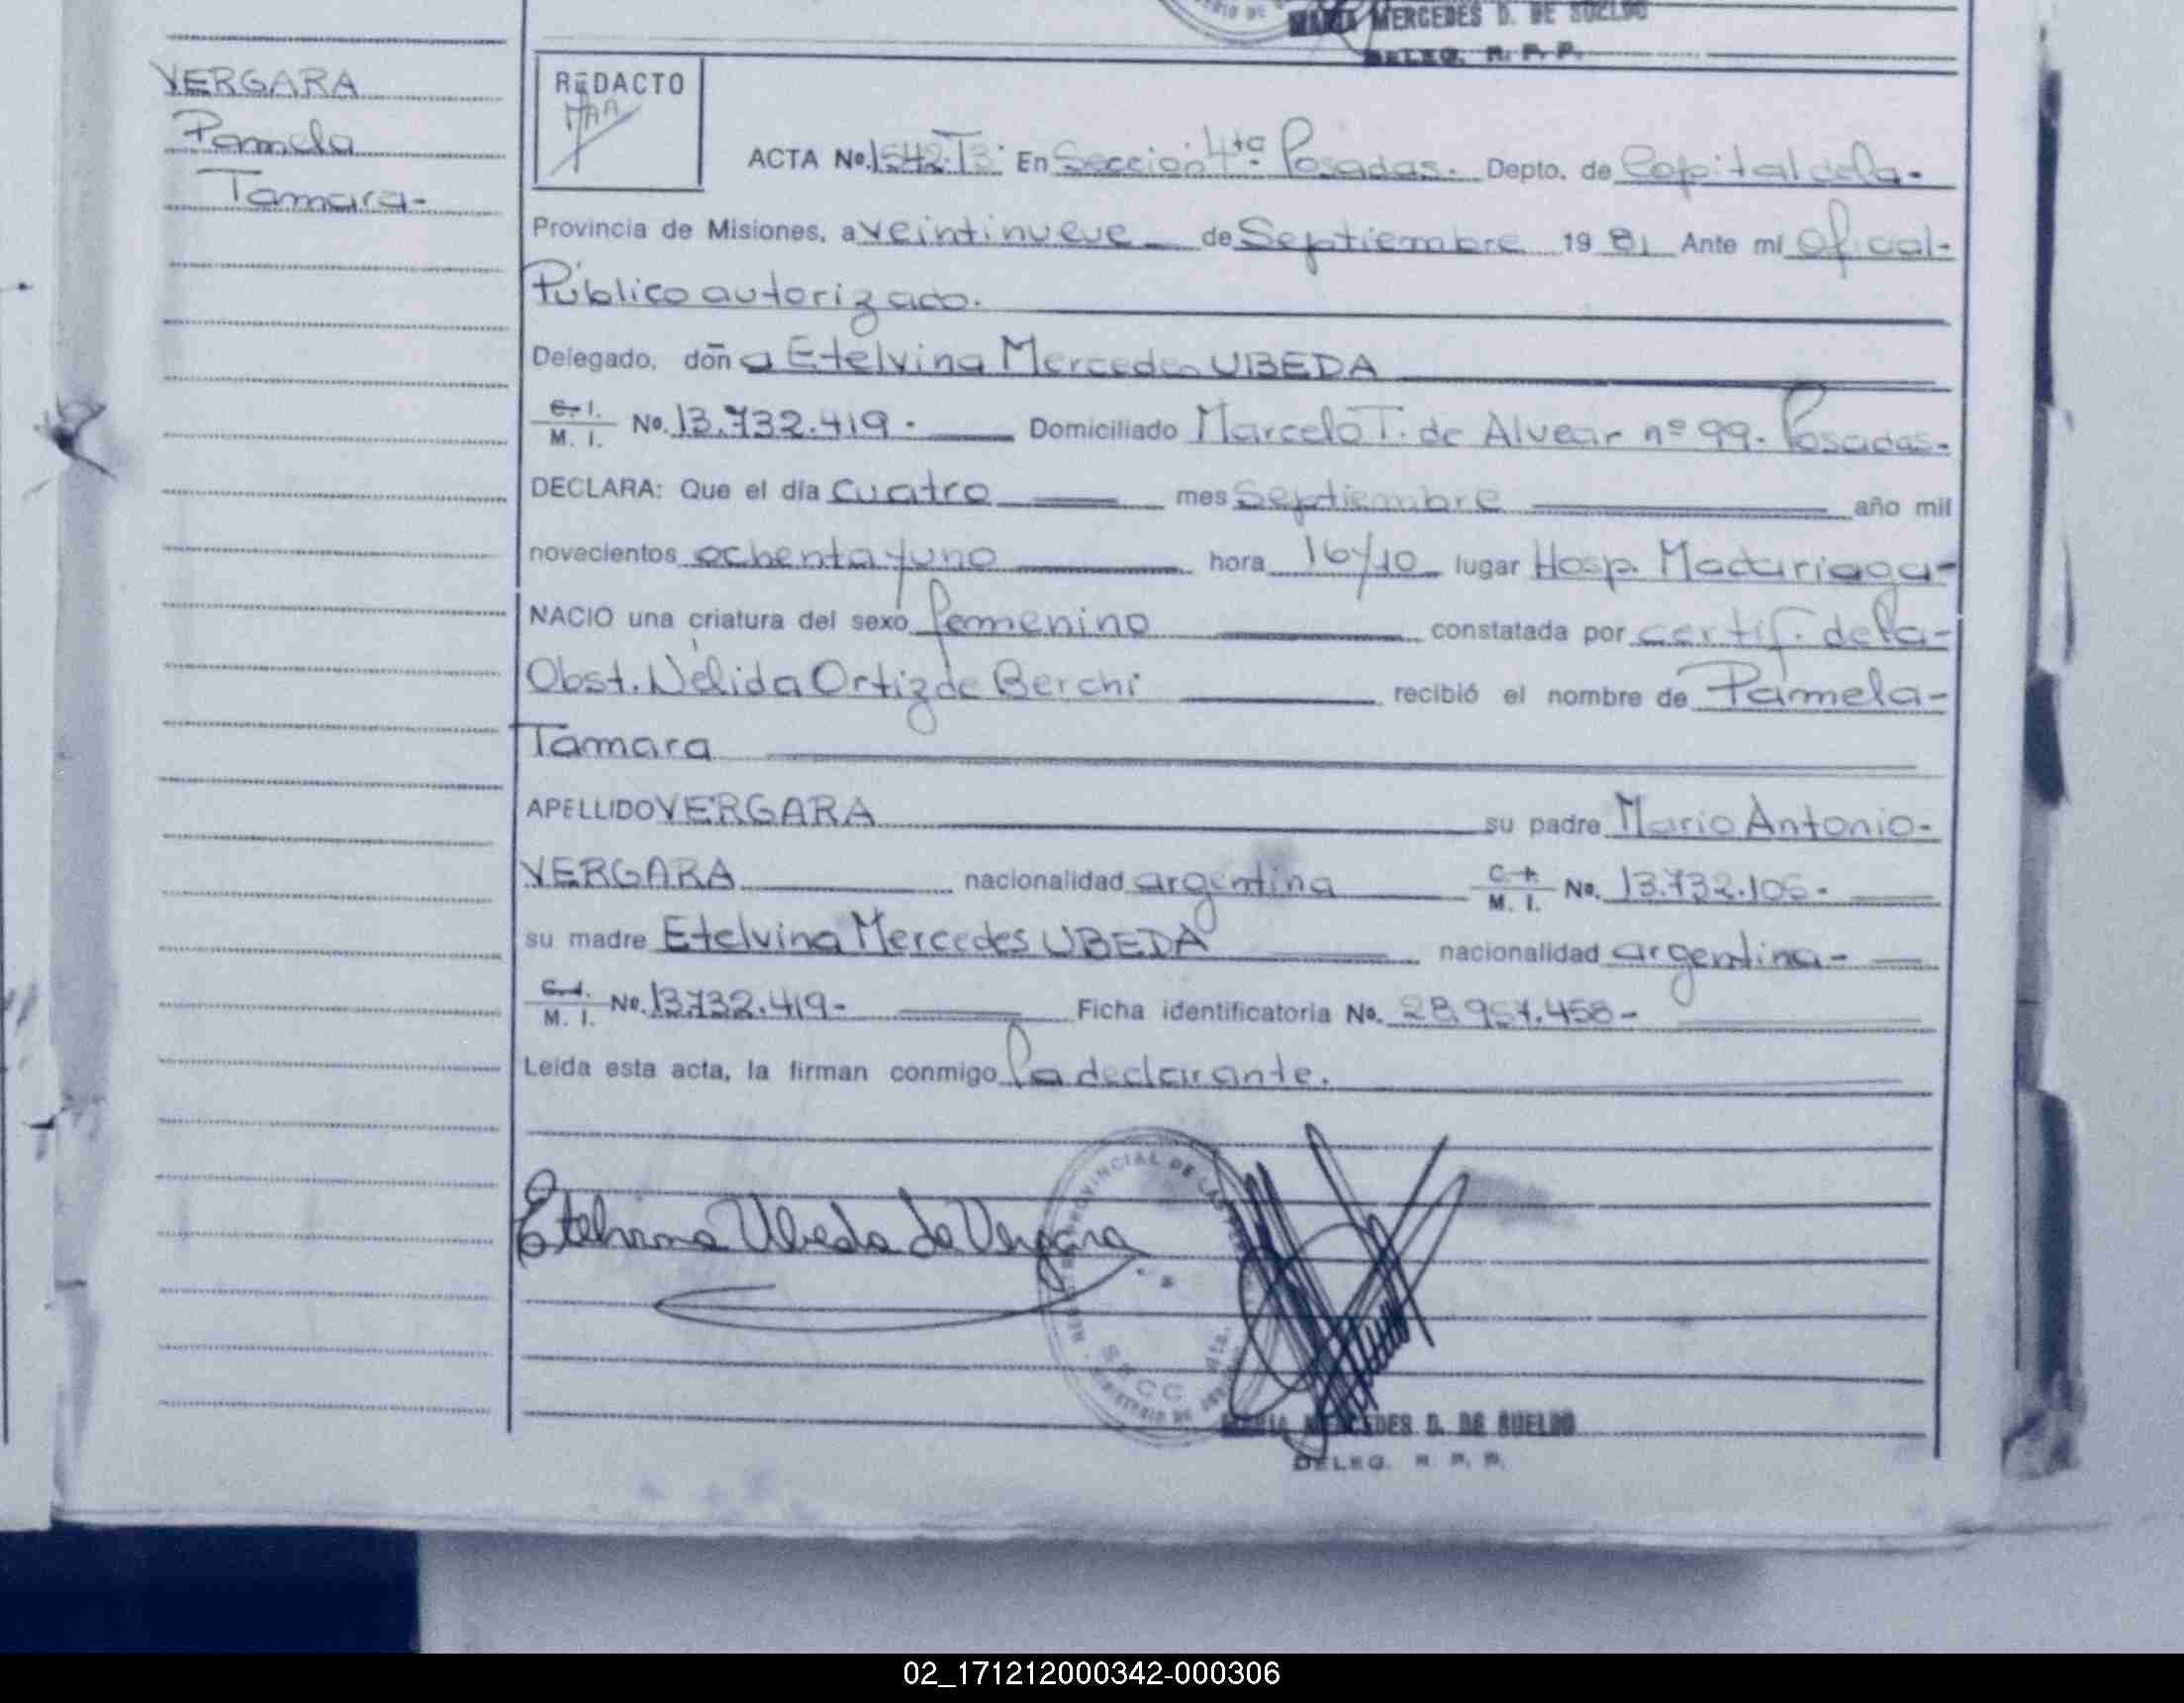 MARIA MERCEDES D. DE SUELDO
DELEG. R. P. P.
VERGARA
Pamela
Tamara-
REDACTO
ACTA No. 1542. T3. En Sección 4ta Posadas. Depto. de Capital de la-
Provincia de Misiones, a veintinueve de Septiembre 19 81 Ante mi Oficial-
Público autorizado.
Delegado, doña Etelvina Mercedes UBEDA
C. I.
M. I. No. 13.732.419. Domiciliado Marcelo T. de Alvear nº 99. Posadas-
DECLARA: Que el día cuatro mes Septiembre año mil
novecientos ochenta y uno hora 16y10 lugar Hosp. Madariaga-
NACIO una criatura del sexo femenino constatada por certif. de la-
Obst. Nélida Ortiz de Berchi recibió el nombre de Pamela-
Tamara
APELLIDO VERGARA su padre Mario Antonio-
VERGARA nacionalidad argentina C. I. M. I. No. 13.732.105-
su madre Etelvina Mercedes UBEDA nacionalidad argentina-
C. I.
M. I. No. 13.732.419- Ficha identificatoria No. 28.957.458-
Leída esta acta, la firman conmigo la declarante.
Etelvina Ubeda de Vergara
PROVINCIAL DE LAS
SECC 4ta.
MARIA MERCEDES D. DE SUELDO
DELEG. R. P. P.
02_171212000342-000306